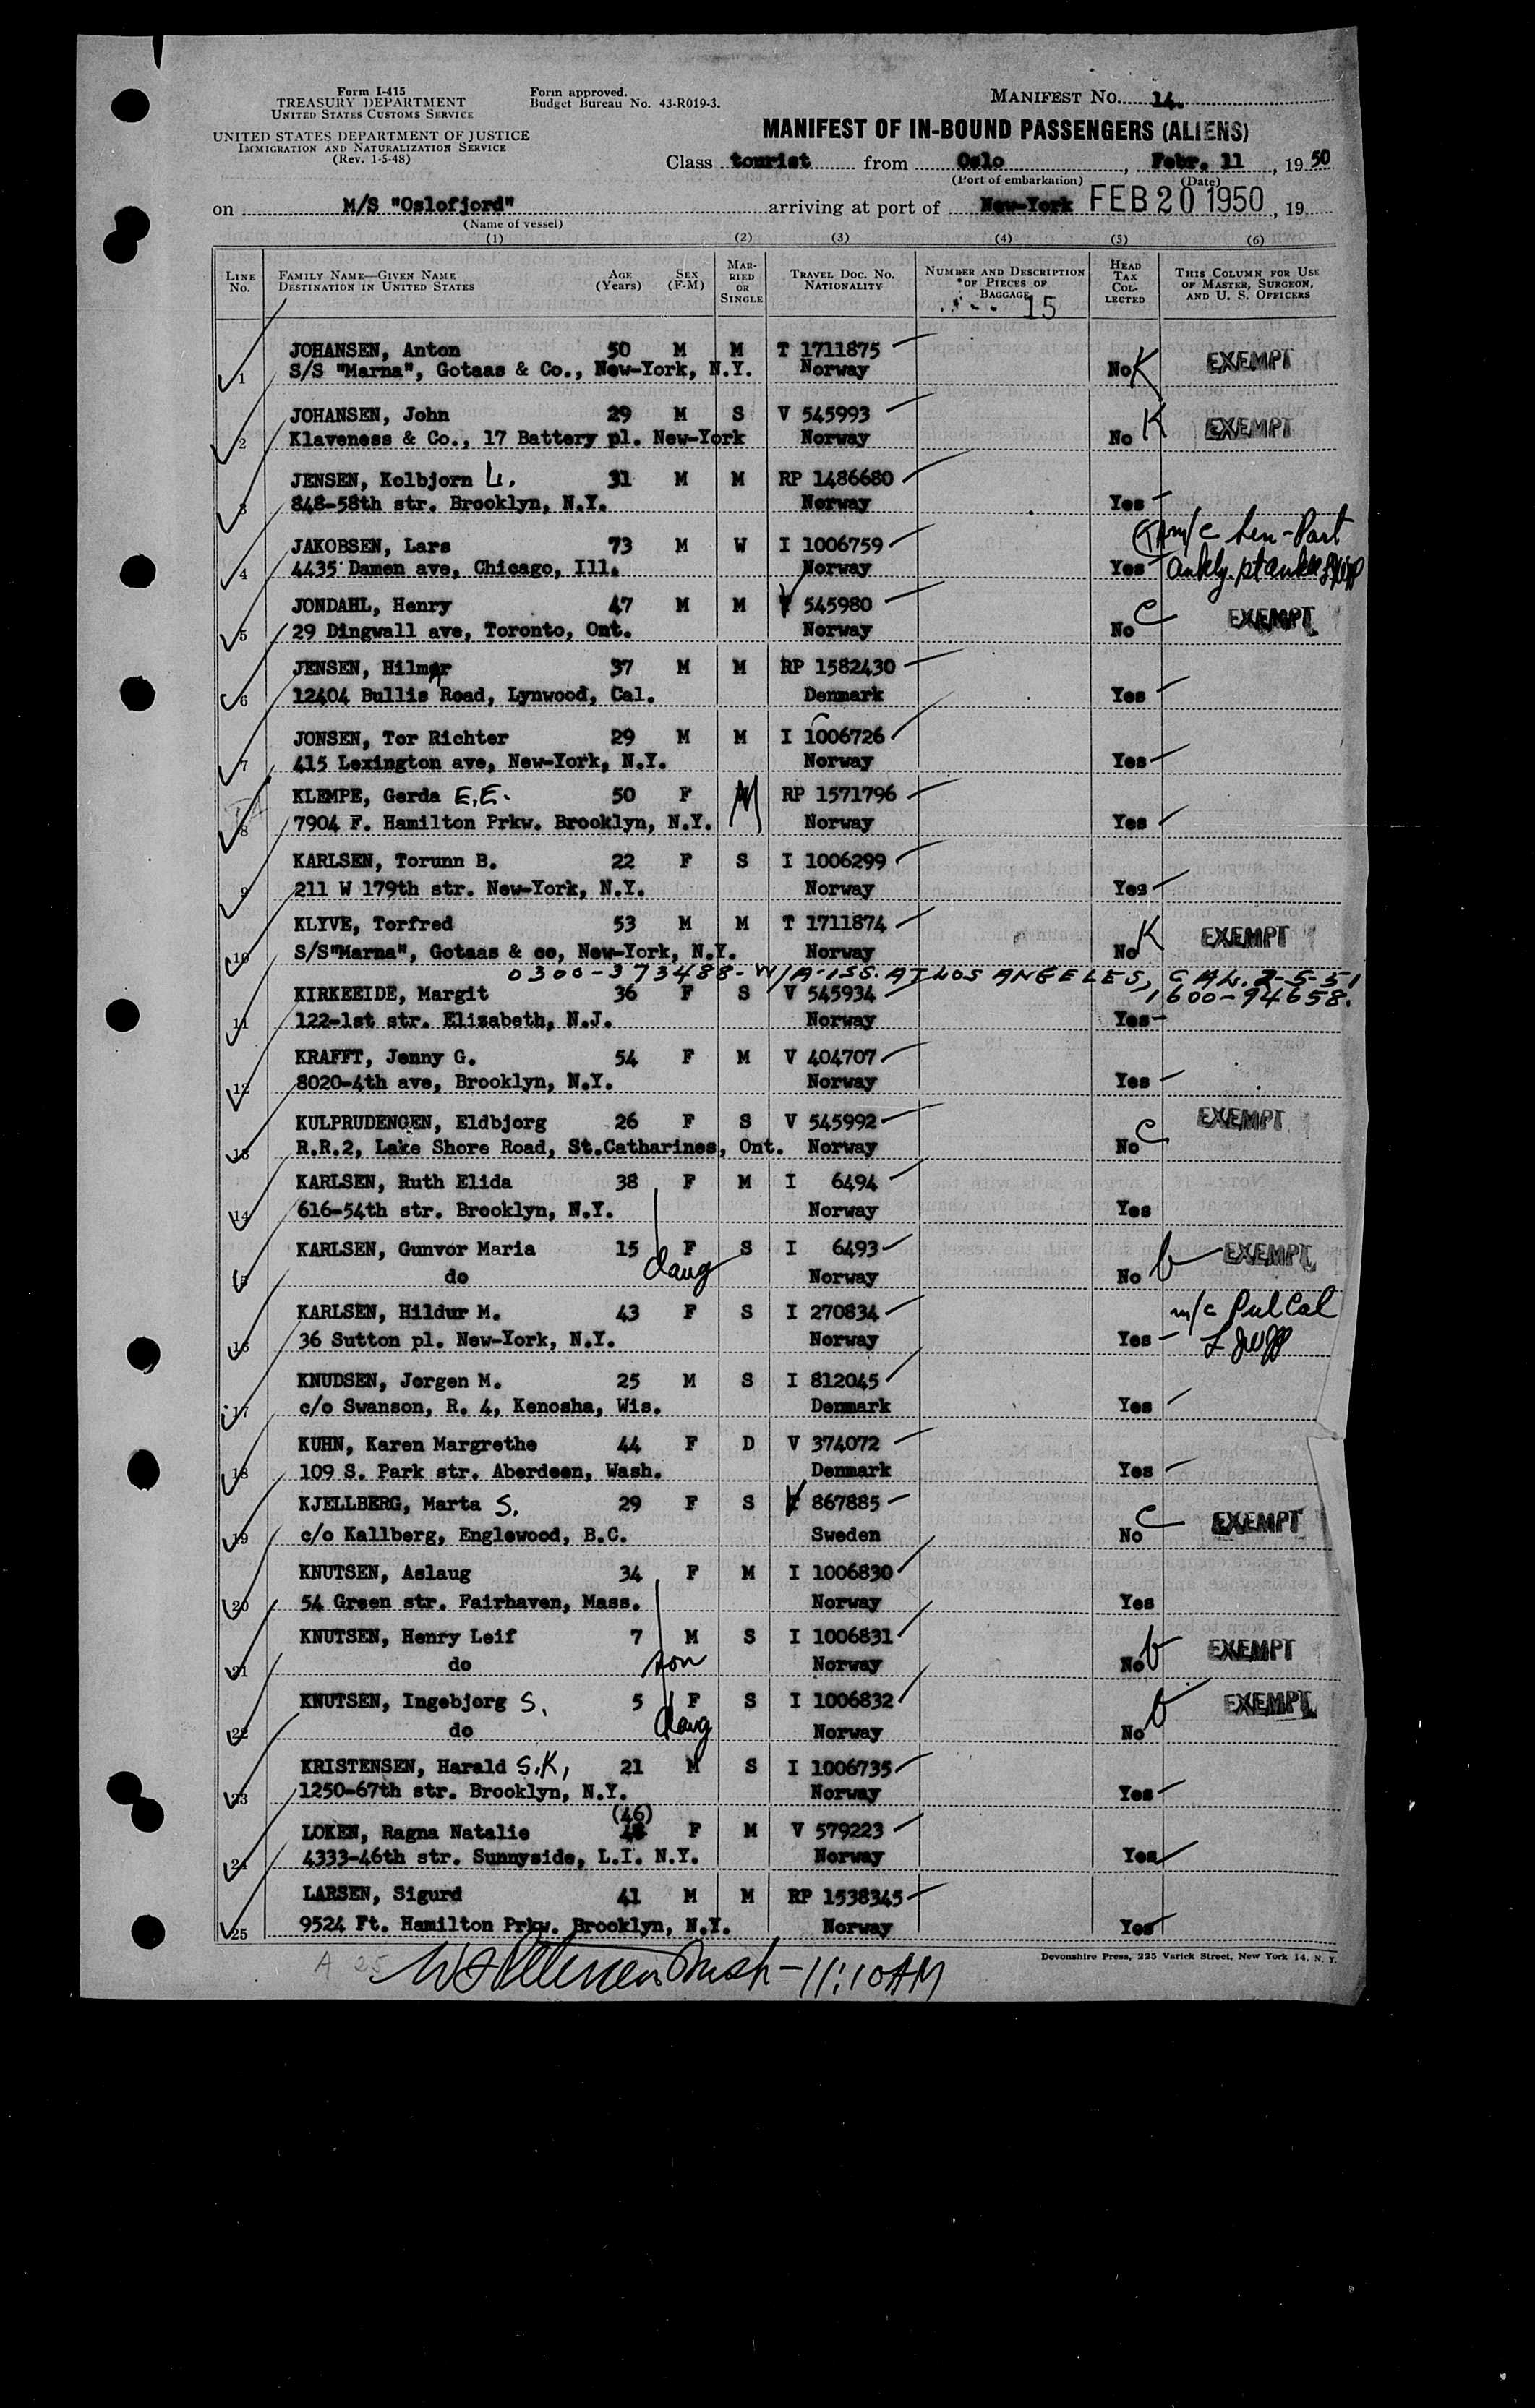 Form I-415
TREASURY DEPARTMENT
UNITED STATES CUSTOMS SERVICE
UNITED STATES DEPARTMENT OF JUSTICE
IMMIGRATION AND NATURALIZATION SERVICE
(Rev. 1-5-48)
Form approved.
Budget Bureau No. 43-R019-3.
MANIFEST NO. 14.
MANIFEST OF IN-BOUND PASSENGERS (ALIENS)
Class tourist from Oslo, Febr. 11, 19 50
(Port of embarkation) (Date)
on M/S "Oslofjord" arriving at port of New-York FEB 20 1950, 19
(Name of vessel)
(1) (2) (3) (4) (5) (6)
LINE NO. FAMILY NAME—GIVEN NAME DESTINATION IN UNITED STATES AGE (Years) SEX (F-M) MARRIED OR SINGLE TRAVEL DOC. NO. NATIONALITY NUMBER AND DESCRIPTION OF PIECES OF BAGGAGE HEAD TAX COLLECTED THIS COLUMN FOR USE OF MASTER, SURGEON, AND U. S. OFFICERS
15
JOHANSEN, Anton 50 M M T 1711875
1 S/S "Marna", Gotaas & Co., New-York, N.Y. Norway No K EXEMPT
JOHANSEN, John 29 M S V 545993
2 Klaveness & Co., 17 Battery pl. New-York Norway No K EXEMPT
JENSEN, Kolbjorn L. 31 M M RP 1486680
3 848-58th str. Brooklyn, N.Y. Norway Yes
JAKOBSEN, Lars 73 M W I 1006759 m/c Sen-Part
4 4435 Damen ave, Chicago, Ill. Norway Yes
JONDAHL, Henry 47 M M V 545980
5 29 Dingwall ave, Toronto, Ont. Norway No C EXEMPT
JENSEN, Hilmar 37 M M RP 1582430
6 12404 Bullis Road, Lynwood, Cal. Denmark Yes
JONSEN, Tor Richter 29 M M I 1006726
7 415 Lexington ave, New-York, N.Y. Norway Yes
KLEMPE, Gerda E.E. 50 F M RP 1571796
8 7904 F. Hamilton Prkw. Brooklyn, N.Y. Norway Yes
KARLSEN, Torunn B. 22 F S I 1006299
9 211 W 179th str. New-York, N.Y. Norway Yes
KLYVE, Torfred 53 M M T 1711874
10 S/S"Marna", Gotaas & co, New-York, N.Y. Norway No K EXEMPT
0300-373488-W/A-ISS. AT LOS ANGELES, CAL. 2-5-51
1600-94658.
KIRKEEIDE, Margit 36 F S V 545934
11 122-1st str. Elizabeth, N.J. Norway Yes
KRAFFT, Jenny G. 54 F M V 404707
12 8020-4th ave, Brooklyn, N.Y. Norway Yes
KULPRUDENGEN, Eldbjorg 26 F S V 545992
13 R.R.2, Lake Shore Road, St.Catharines, Ont. Norway No C EXEMPT
KARLSEN, Ruth Elida 38 F M I 6494
14 616-54th str. Brooklyn, N.Y. Norway Yes
KARLSEN, Gunvor Maria 15 F S I 6493
15 do daug Norway No b EXEMPT
KARLSEN, Hildur M. 43 F S I 270834 m/c Pul Cal
16 36 Sutton pl. New-York, N.Y. Norway Yes
KNUDSEN, Jorgen M. 25 M S I 812045
17 c/o Swanson, R. 4, Kenosha, Wis. Denmark Yes
KUHN, Karen Margrethe 44 F D V 374072
18 109 S. Park str. Aberdeen, Wash. Denmark Yes
KJELLBERG, Marta S. 29 F S V 867885
19 c/o Kallberg, Englewood, B.C. Sweden No C EXEMPT
KNUTSEN, Aslaug 34 F M I 1006830
20 54 Green str. Fairhaven, Mass. Norway Yes
KNUTSEN, Henry Leif 7 M S I 1006831
21 do son Norway No b EXEMPT
KNUTSEN, Ingebjorg S. 5 F S I 1006832
22 do daug Norway No b EXEMPT
KRISTENSEN, Harald S.K. 21 M S I 1006735
23 1250-67th str. Brooklyn, N.Y. Norway Yes
LOKEN, Ragna Natalie (46) F M V 579223
24 4333-46th str. Sunnyside, L.I. N.Y. Norway Yes
LARSEN, Sigurd 41 M M RP 1538345
25 9524 Ft. Hamilton Prkw. Brooklyn, N.Y. Norway Yes
Devonshire Press, 225 Varick Street, New York 14, N. Y.
A 25 Insp-11:10AM